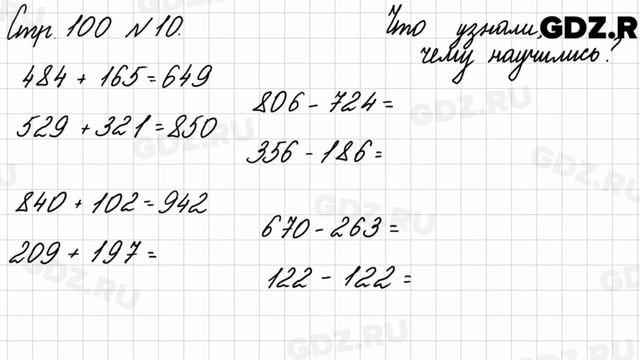 Стр. 100 №10.
Что узнали,
чему научились?
GDZ.R
484 + 165 = 649
529 + 321 = 850
840 + 102 = 942
209 + 197 =
806 - 724 =
356 - 186 =
670 - 263 =
122 - 122 =
GDZ.RU
GDZ.RU
GDZ.RU
GDZ.RU
GDZ.RU
GDZ.RU